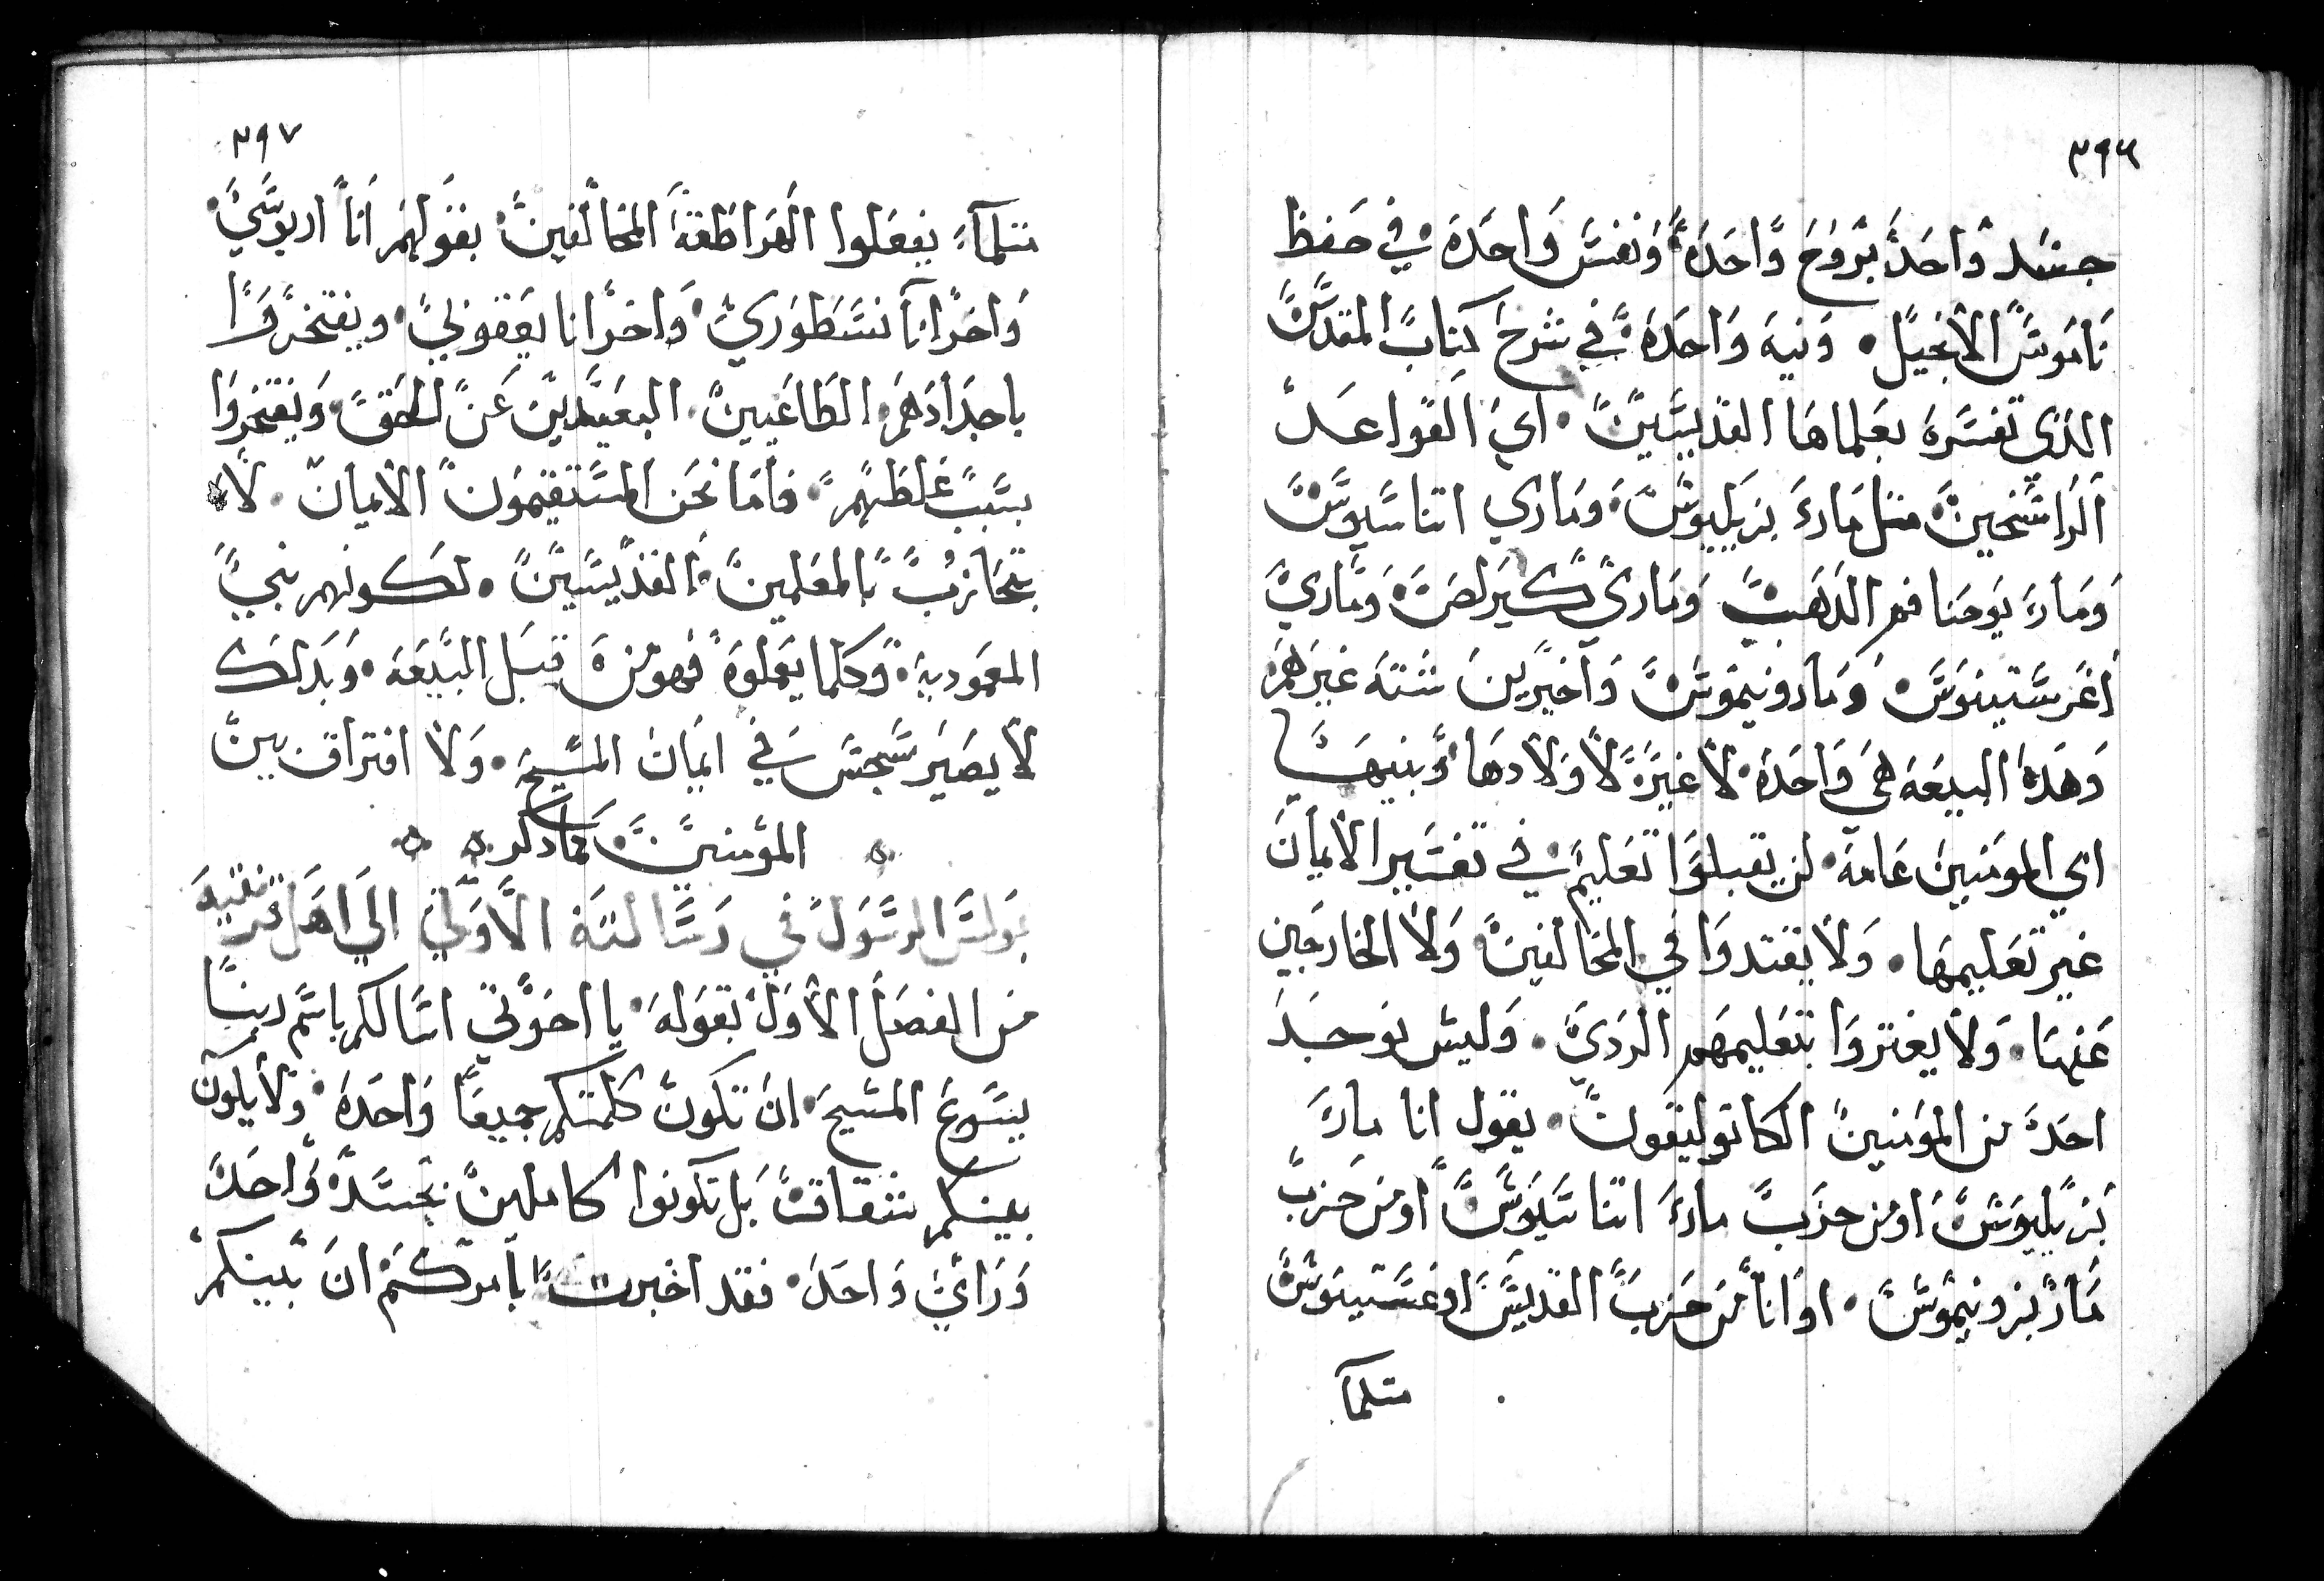 ٣٩٦
جسد واحد بروح واحده ونفس واحده في حفظ
ناموس الانجيل. ونيه واحده في شرح كتاب المقدس
الذي تفسره بعلماها القديسين. اي القواعد
الراسخين مثل ماري بزيليوس وماري اتناسيوس
وماري يوحنا فم الذهب وماري كيرلص وماري
اغرستينوس وماررونيموس واخيرين ستة غيرهم
وهذه البيعه هي واحده لا غيره لاولادها وبنيها
اي المومنين عامة لن يقبلوا تعليم في تفسير الايمان
غير تعليمها. ولا يقتدوا في المخالفين ولا الخارجين
عنها. ولا يغتروا بتعليمهم الردي. وليس يوجد
احد من المومنين الكاتوليقون. يقول انا ماري
بزيليوس او من حزب ماري اتناسيوس او من حزب
مار يزونيموس. او انا من حزب القديس اوغستينوس
متلما
٣٩٧
متلما يفعلوا الهراطقة المخالفين بقولهم انا اريوسي
واخر انا نسطوري واخر انا يعقوبي. ويفتخروا
باجدادهم الطاغيين البعيدين عن الحق ويفتخروا
بسبب غلطهم. فاما نحن المستقيمون الايمان. لا
نتحازب بالمعلمين القديسين. لكونهم بني
المعموديه وكلما يعملوه فهو من قبل البيعه. وبذلك
لا يصير سجس في ايمان المسيح. ولا افتراق بين
المومنين كما ذكر
بولس الرسول في رسالته الاولي الي اهل قرنتيه
من الفصل الاول بقوله يا اخوتي اسالكم باسم ربنا
يسوع المسيح ان تكون كلمتكم جميعا واحده ولا يكون
بينكم شقاقات بل تكونوا كاملين بجسد واحد
وراي واحد. فقد اخبرت بامركم ان بينكم